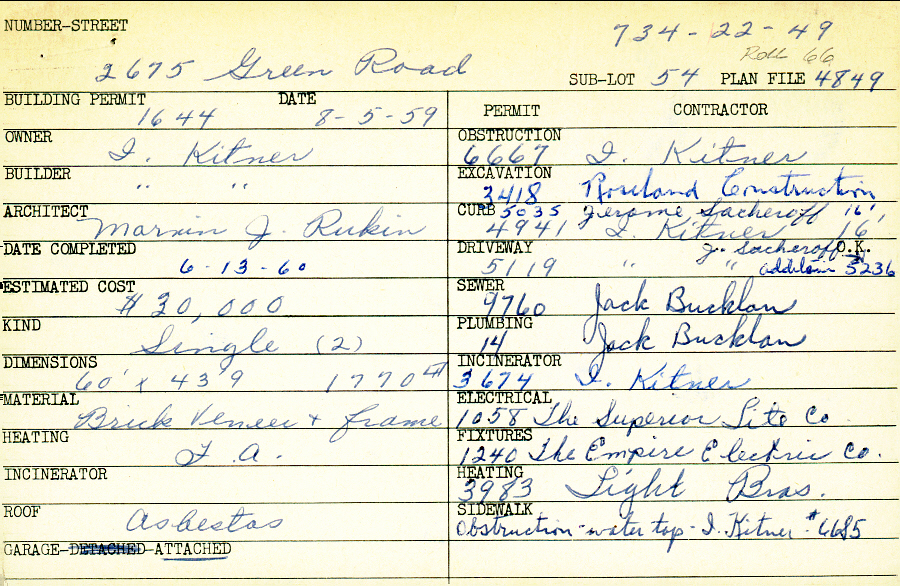 NUMBER-STREET
734-22-49
Roll 66
2675 Green Road
SUB-LOT 54 PLAN FILE 4849
BUILDING PERMIT DATE
1644 8-5-59
OWNER
I. Kitner
BUILDER
" "
ARCHITECT
Marvin J. Rukin
DATE COMPLETED
6-13-60
ESTIMATED COST
$30,000
KIND
Single (2)
DIMENSIONS
60' x 43'9 1770 #
MATERIAL
Brick Veneer + frame
HEATING
F. A.
INCINERATOR
ROOF
Asbestos
GARAGE-DETACHED-ATTACHED
PERMIT CONTRACTOR
OBSTRUCTION
6667 I. Kitner
EXCAVATION
3418 Roseland Construction
CURB 5035 Jerome Sacheroff 16',
4941 I. Kitner 16'
DRIVEWAY J. Sacheroff O.K.
5119 " " addition 5236
SEWER
9760 Jack Bucklan
PLUMBING
14 Jack Bucklan
INCINERATOR
3674 I. Kitner
ELECTRICAL
1058 The Superior Lite Co
FIXTURES
1240 The Empire Electric Co.
HEATING
3983 Light Bros.
SIDEWALK
Obstruction-water tap-I. Kitner #6685